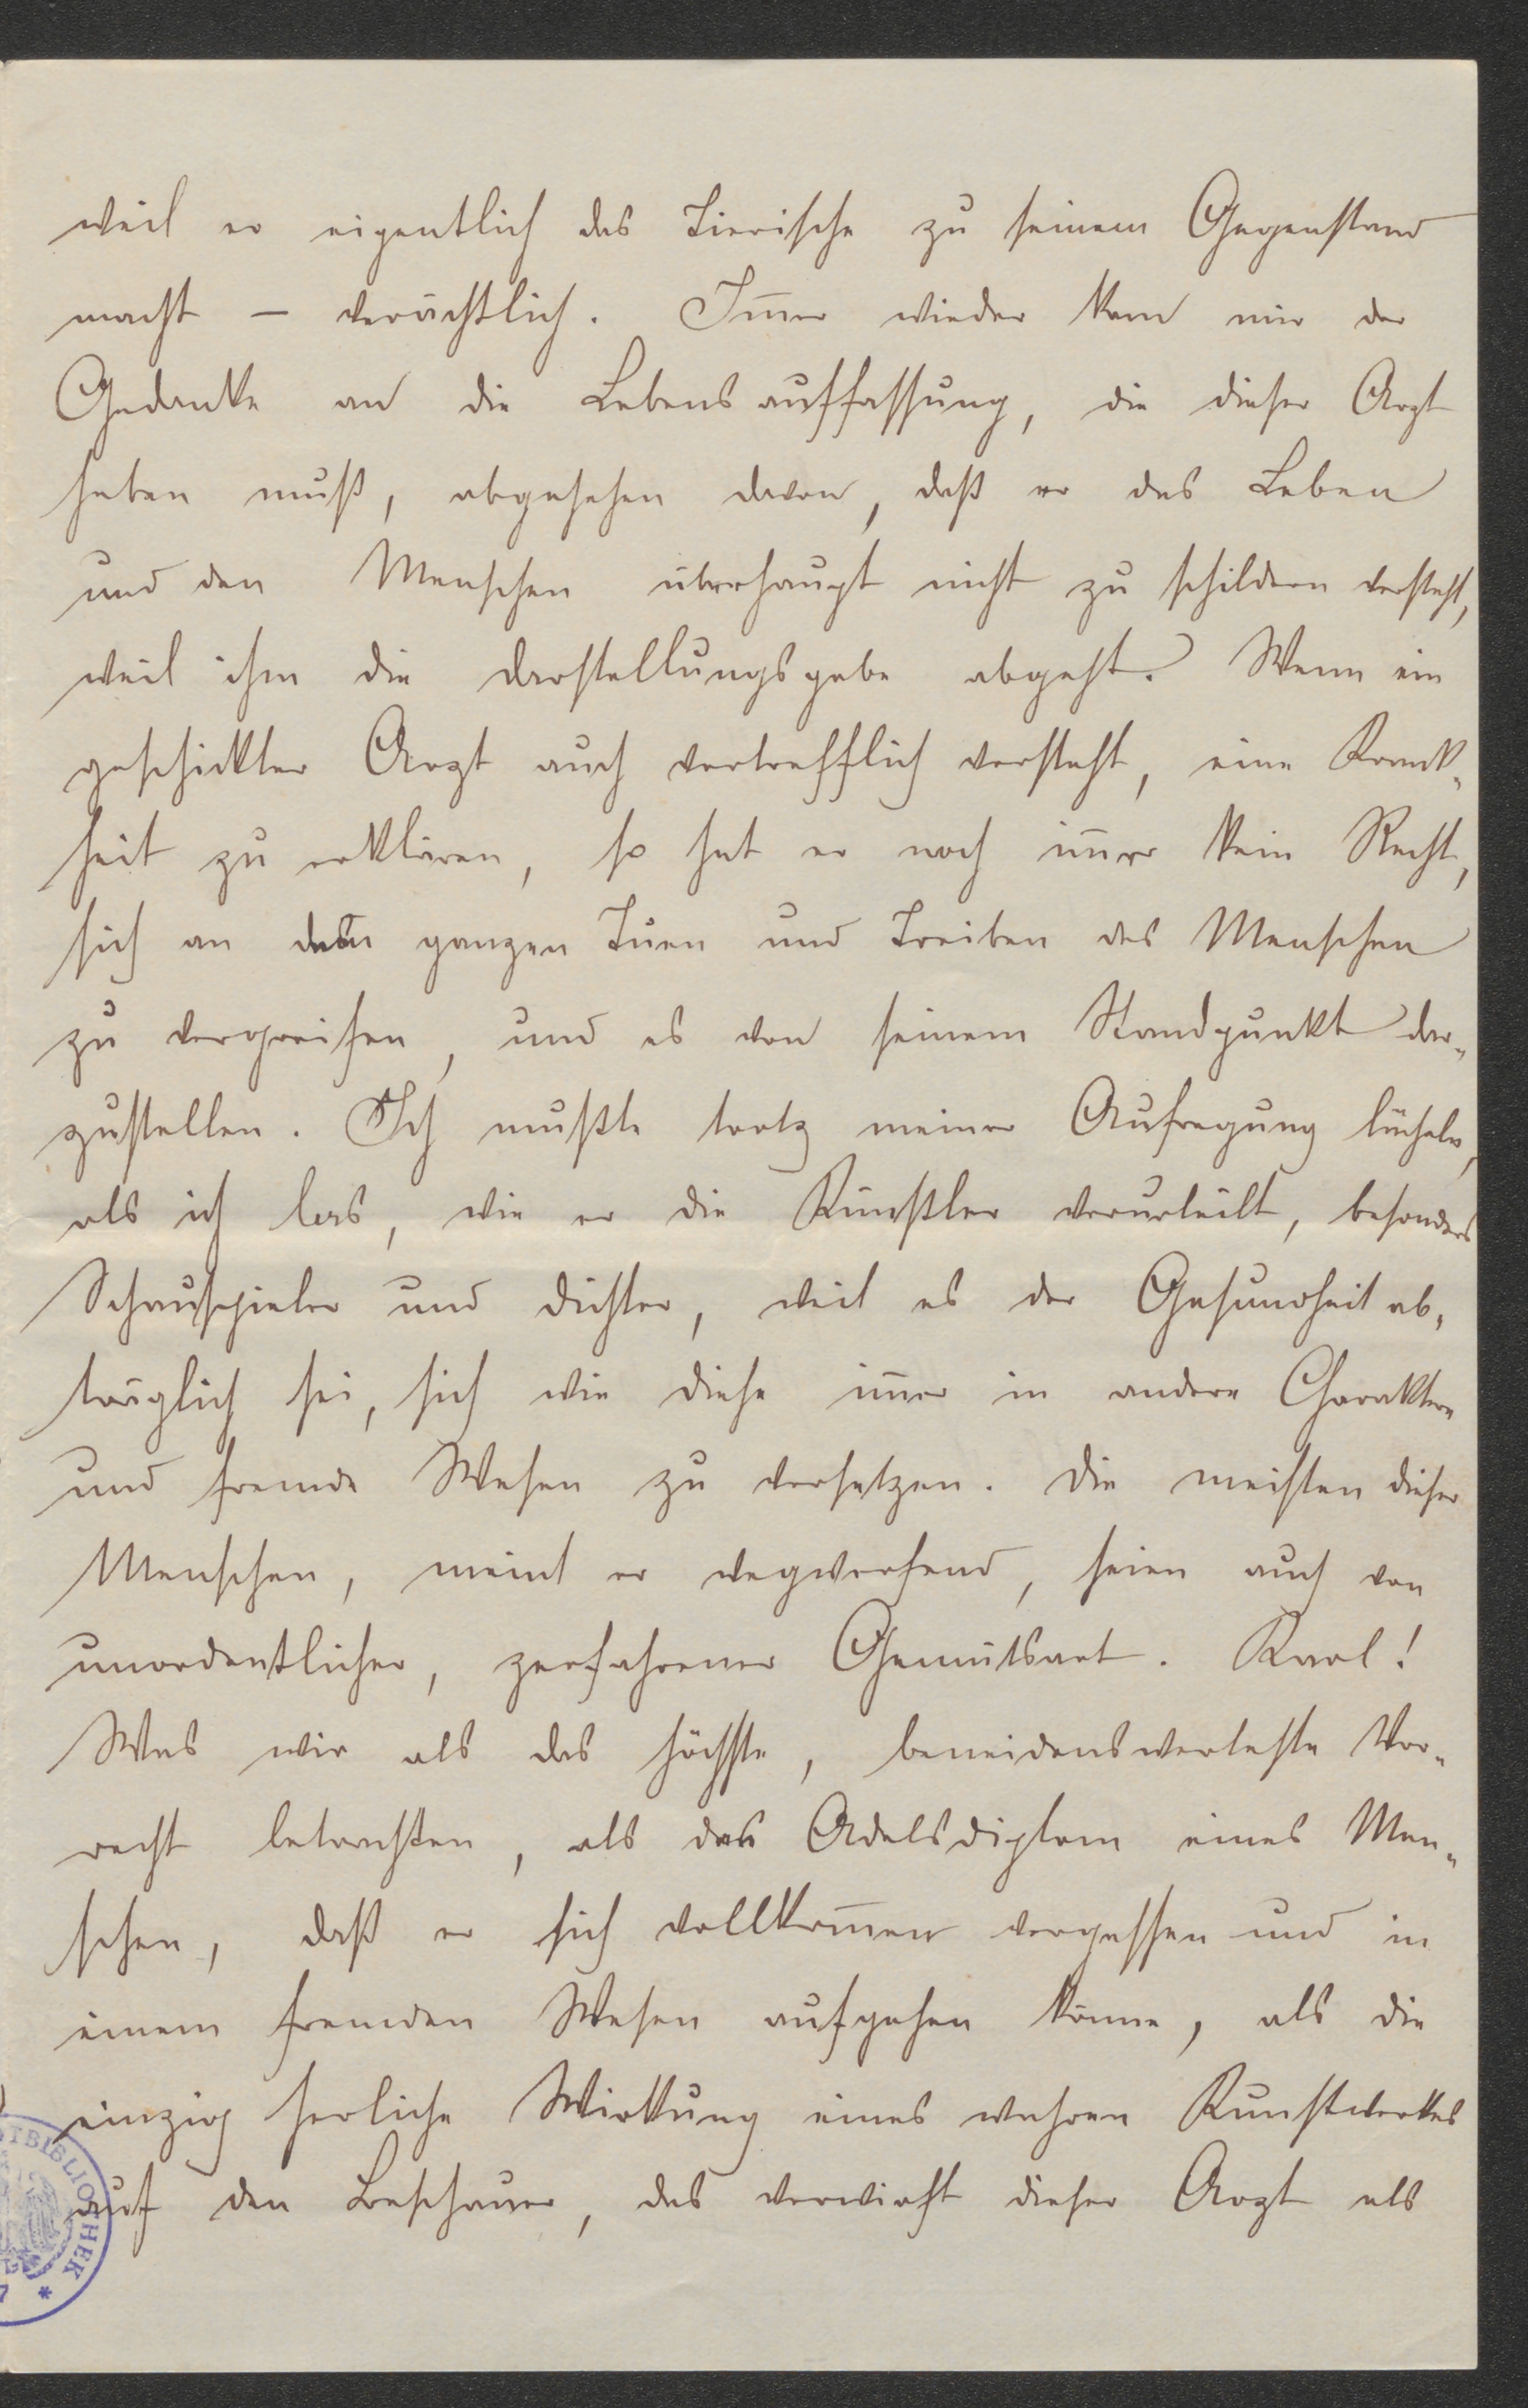 weil er eigentlich das Tierische zu seinem Gegenstand
macht – verächtlich. Im̅er wieder kam mir der
Gedanke an die Lebensauffassung, die dieser Arzt
haben muß, abgesehen davon, daß er das Leben
und den Menschen überhaupt nicht zu schildern versteht,
weil ihm die Darstellungsgabe abgeht. Wenn ein
geschickter Arzt auch vortrefflich versteht, eine Krank-
heit zu erklären, so hat er noch im̅er kein Recht,
sich an dem ganzen Tuen und Treiben des Menschen
zu vergreifen, und es von seinem Standpunkt dar-
zustellen. Ich mußte trotz meiner Aufregung lächeln,
als ich las, wie er die Künstler verurteilt, besonders
Schauspieler und Dichter, weil es der Gesundheit ab-
träglich sei, sich wie diese im̅er in andere Charaktere
und fremde Wesen zu versetzen. Die meisten dieser
Menschen, meint er wegwerfend, seien auch von
unordentlicher, zerfahrener Gemütsart. Karl!
Was wir als das höchste, beneidenswerteste Vor-
recht betrachten, als das Adelsdiplom eines Men-
schen, daß er sich vollkom̅en vergessen und in
einem fremden Wesen aufgehen könne, als die
einzig herliche Wirkung eines wahren Kunstwerkes
auf den Beschauer, das verwirft dieser Arzt als
TBIBLIOTHEK